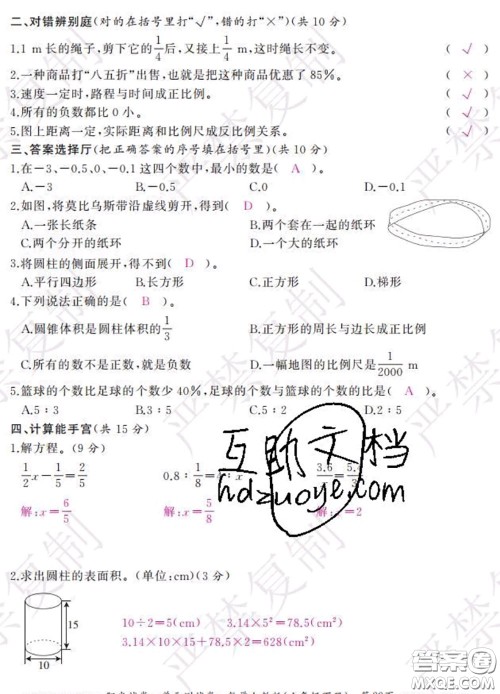 二、对错辨别庭(对的在括号里打“√”,错的打“×”)(共 10 分)
1.1 m 长的绳子,剪下它的1/4后,又接上1/4 m,这时绳长不变。 ( √ )
2.一种商品打“八五折”出售,也就是把这种商品优惠了 85%。 ( × )
3.速度一定时,路程与时间成正比例。 ( √ )
4.所有的负数都比 0 小。 ( √ )
5.图上距离一定,实际距离和比例尺成反比例关系。 ( √ )
三、答案选择厅(把正确答案的序号填在括号里)(共 10 分)
1.在-3、-0.5、0、-0.1 这四个数中,最小的数是( A )。
A.-3 B.-0.5 C.0 D.-0.1
2.如图,将莫比乌斯带沿虚线剪开,得到( D )。
A.一张长纸条 B.两个套在一起的纸环
C.两个分开的纸环 D.一个大的纸环
3.将圆柱的侧面展开,得不到( D )。
A.平行四边形 B.长方形 C.正方形 D.梯形
4.下列说法正确的是( B )。
A.圆锥体积是圆柱体积的1/3 B.正方形的周长与边长成正比例
C.所有的数不是正数,就是负数 D.一幅地图的比例尺是1/2000 m
5.篮球的个数比足球的个数少 40%,足球的个数与篮球的个数的比是( A )。
A.5∶3 B.3∶5 C.5∶2 D.2∶5
四、计算能手宫(共 15 分)
1.解方程。(9 分)
1/2x-1/5=2/5 0.8∶1/8=4∶x
解:x=6/5 解:x=5/8 解:x=2
互助文档
hdzuoye.com
2.求出圆柱的表面积。(单位:cm)(3 分)
10÷2=5(cm) 3.14×5²=78.5(cm²)
3.14×10×15+78.5×2=628(cm²)
15
10
严禁复制
答案圈
MXQE.COM